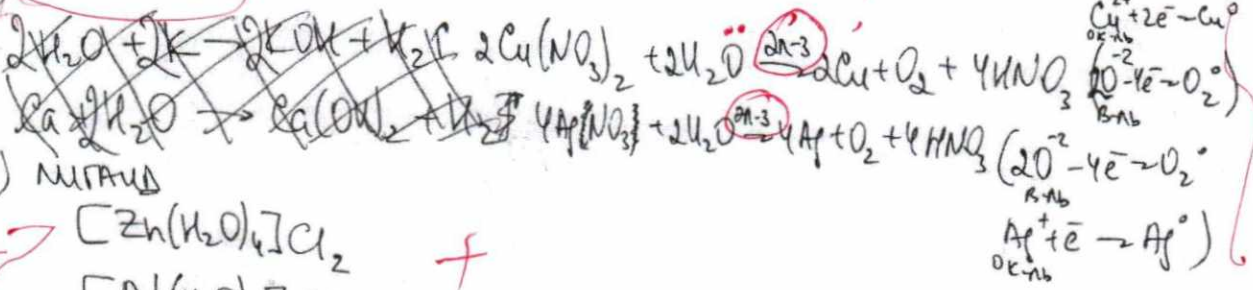 2H₂O + 2K → 2KOH + H₂↑ 2Cu(NO₃)₂ + 2H₂O эл-з→ 2Cu + O₂ + 4HNO₃ (Cu²⁺ + 2e⁻ → Cu⁰
ок-ль
2O⁻² - 4e⁻ → O₂⁰)
в-ль
Ca + 2H₂O → Ca(OH)₂ + H₂↑ 4Ag(NO₃) + 2H₂O эл-з→ 4Ag + O₂ + 4HNO₃ (2O⁻² - 4e⁻ → O₂⁰
в-ль
) лиганд
[Zn(H₂O)₄]Cl₂ +
Ag⁺ + e⁻ → Ag⁰)
ок-ль